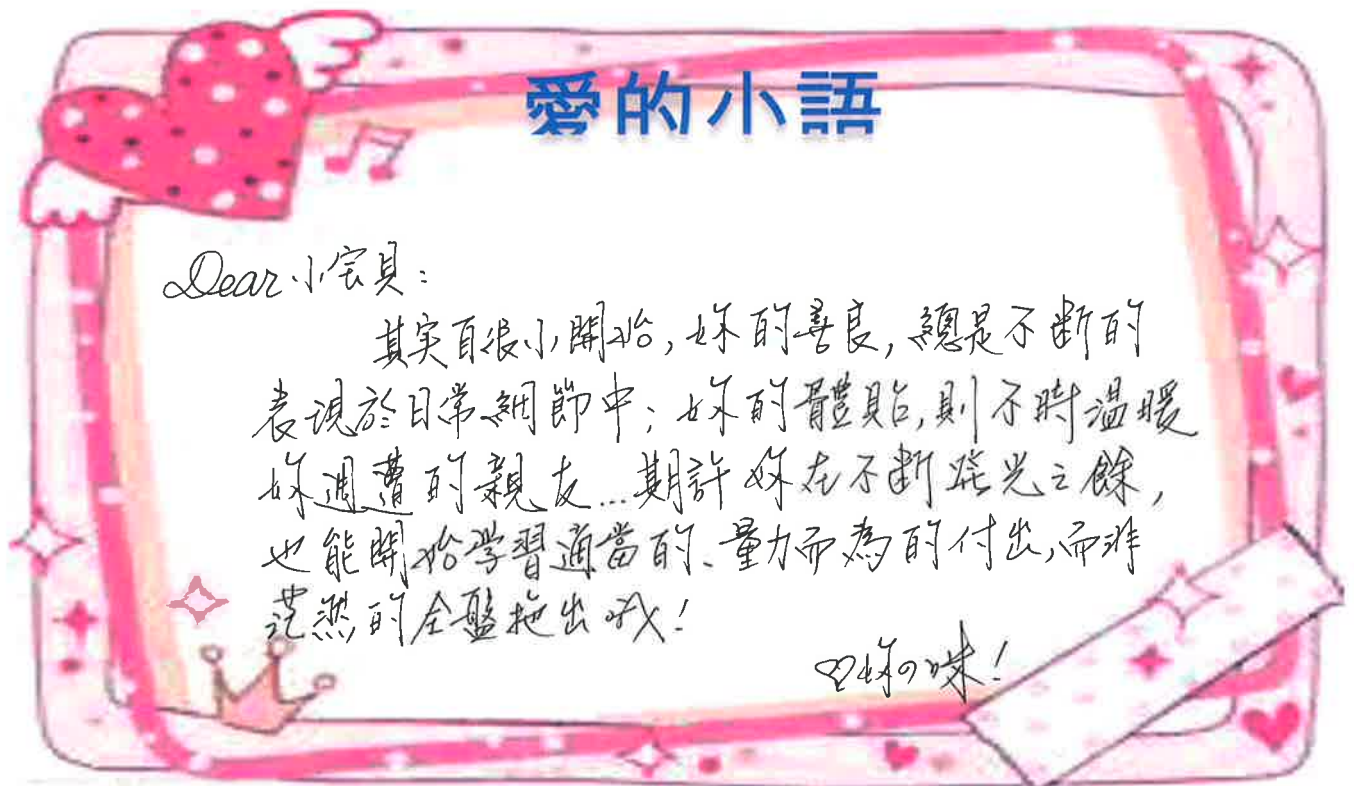 愛的小語
Dear 小宝貝：
其实自很小開始，妳的善良，總是不斷的
表現於日常細節中；妳的體貼，則不時溫暖
妳週遭的親友...期許妳在不斷發光之餘，
也能開始学習適當的、量力而為的付出，而非
茫然的全盤拖出哦！
♡妳の咪！